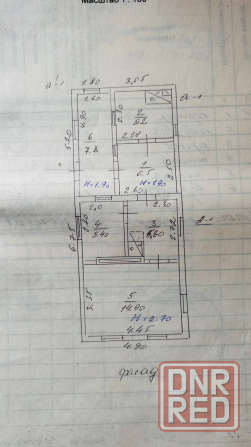 Масштаб 1:100
1.80 3.05
a¹-1
1.60
a-1
2
5.2
4.90
2.20
5.20
2.51
6
7.8
1
6.5
2.60
H=1.90
H=1.90
2.60
2.30
4
5.40
3
2.72
6.75
5
14.90
3.35
H=2.70
4.45
4.90
фасад
DNR
RED